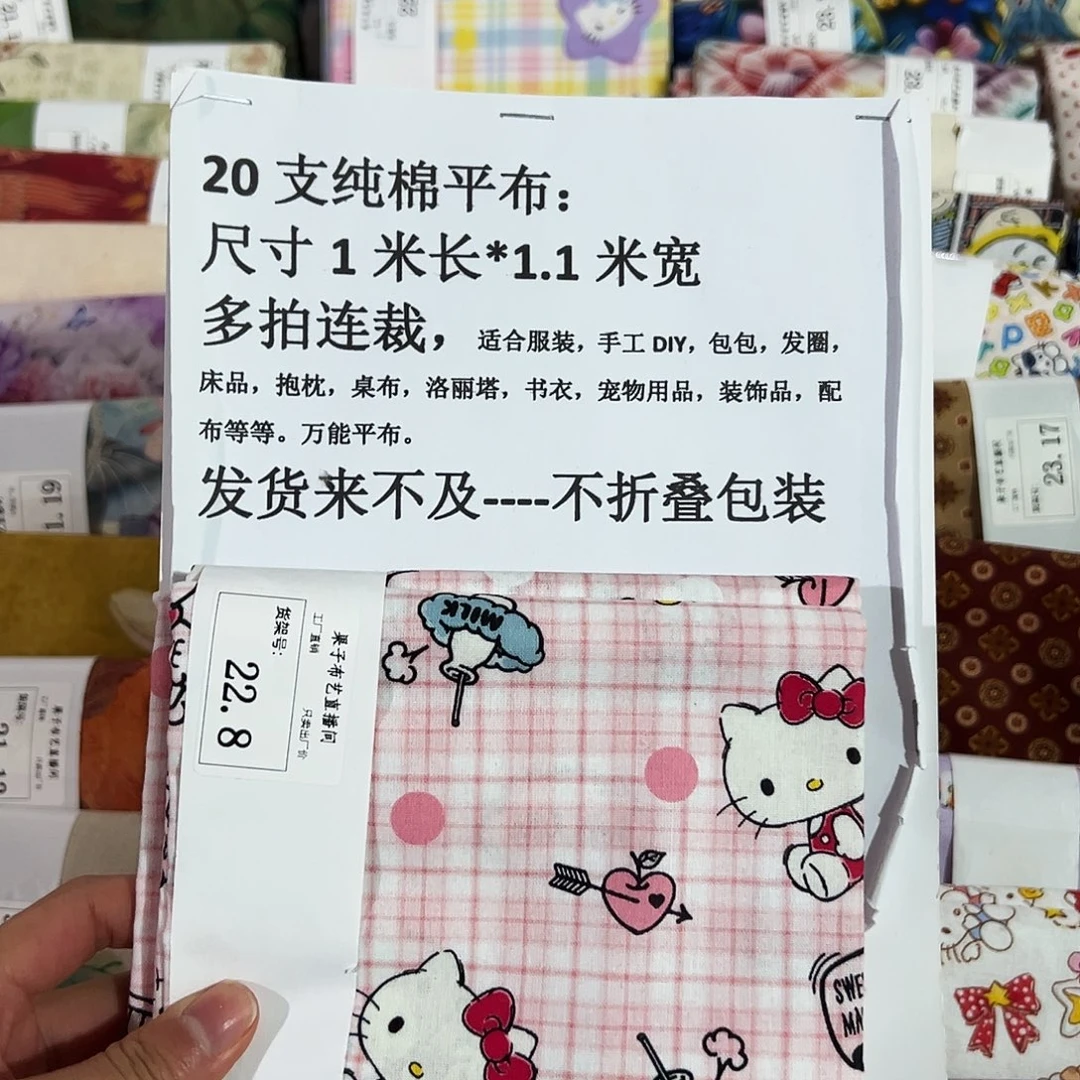 20 支纯棉平布：
尺寸 1 米长*1.1 米宽
多拍连裁，适合服装，手工 DIY，包包，发圈，
床品，抱枕，桌布，洛丽塔，书衣，宠物用品，装饰品，配
布等等。万能平布。
发货来不及----不折叠包装
果子布艺直播间
工厂直销
只卖出厂价
货架号:
22.8
MILK
23.17
果子布艺直播间